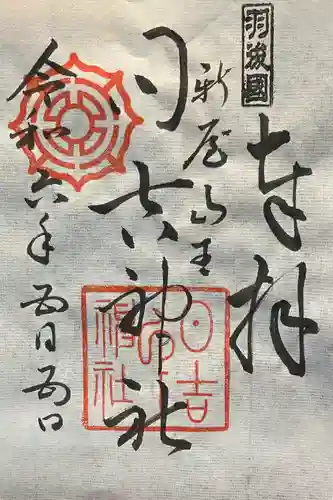 羽後國
奉拝
新屋山王
日吉神社
日吉神社
令和六年四月四日